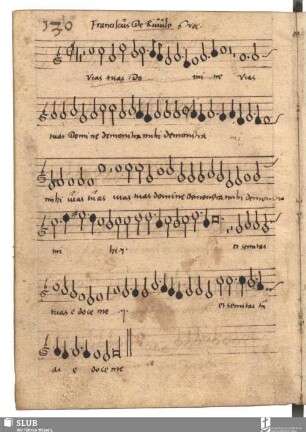 130 Franciscus De Rivulo 6 voc
Vias tuas Do mi ne Vias
tuas Domine demonstra mihi demonstra
mihi vias tuas vias tuas domine demonstra mihi demonstra
mi hi .ij. et semitas
tuas e doce me .ij. et semitas tu
as e doce me
SLUB